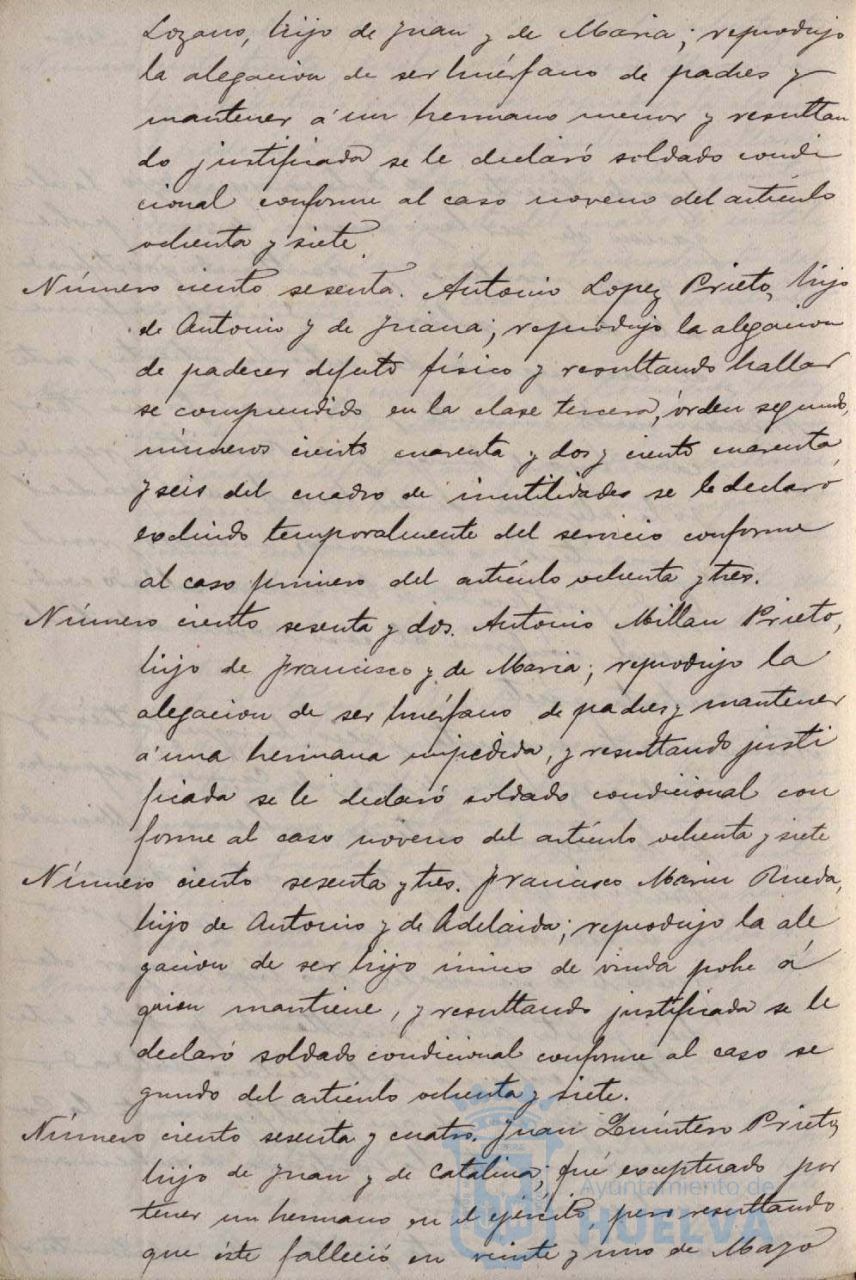 Lozano, hijo de Juan y de Maria; reprodujo
la alegacion de ser huérfano de padres y
mantener á un hermano menor y resultan
do justificada se le declaró soldado condi
cional conforme al caso noveno del artículo
ochenta y siete.
Número ciento sesenta. Antonio Lopez Prieto, hijo
de Antonio y de Juana; reprodujo la alegacion
de padecer defecto físico y resultando hallar
se comprendido en la clase tercera, órden segundo,
números ciento cuarenta y dos y ciento cuarenta
y seis del cuadro de inutilidades se le declaró
excluido temporalmente del servicio conforme
al caso primero del artículo ochenta y tres.
Número ciento sesenta y dos. Antonio Millan Prieto,
hijo de Francisco y de Maria; reprodujo la
alegacion de ser huérfano de padres y mantener
á una hermana impedida, y resultando justi
ficada se le declaró soldado condicional con
forme al caso noveno del artículo ochenta y siete
Número ciento sesenta y tres. Francisco Marin Rueda,
hijo de Antonio y de Adelaida; reprodujo la ale
gacion de ser hijo único de viuda pobre á
quien mantiene, y resultando justificada se le
declaró soldado condicional conforme al caso se
gundo del artículo ochenta y siete.
Número ciento sesenta y cuatro. Juan Quintero Prieto,
hijo de Juan y de Catalina; fué exceptuado por
tener un hermano en el ejército, pero resultando
que éste falleció en veinte y uno de Mayo
Ayuntamiento de
HUELVA